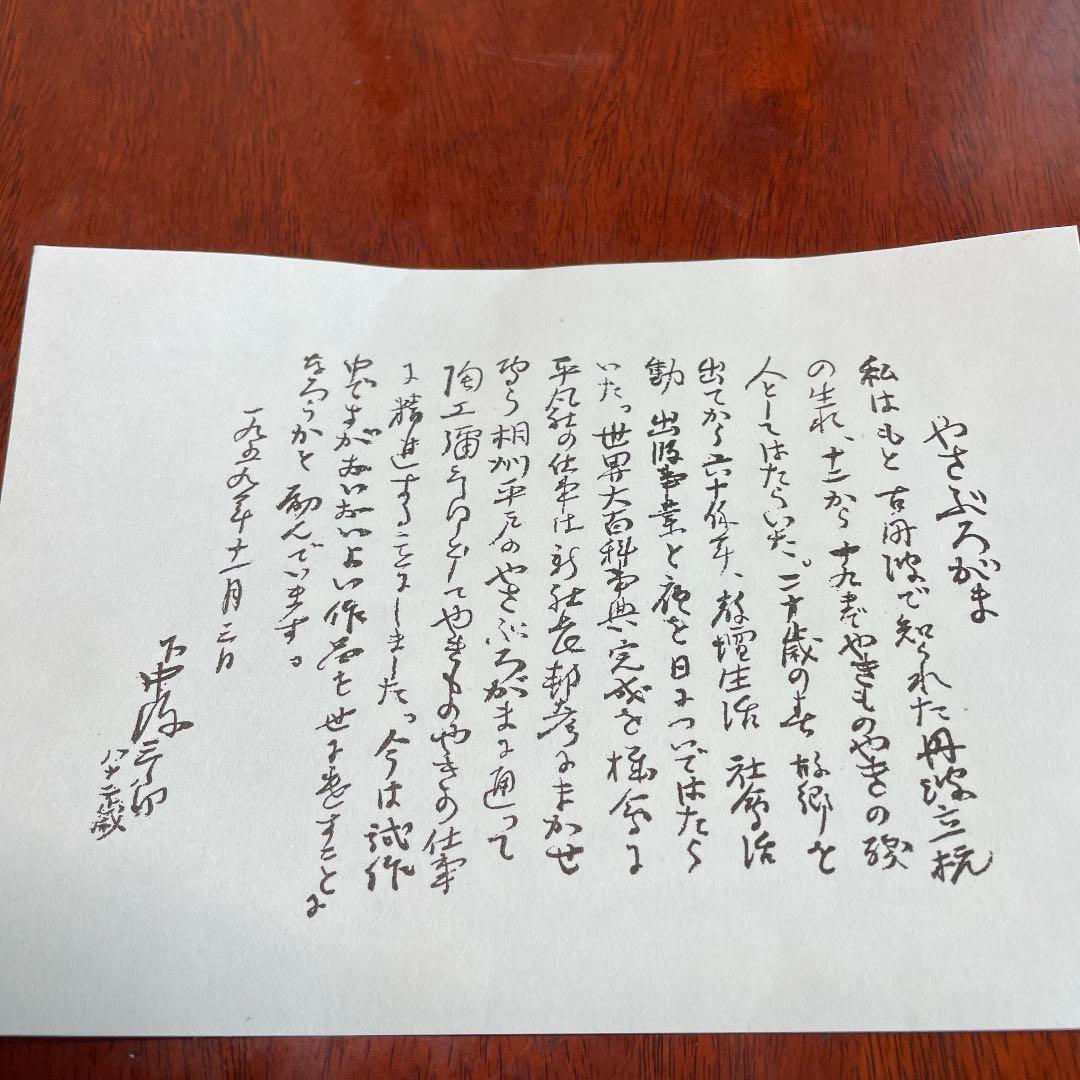 やさぶろがま
私はもと古丹波で知られた丹波立杭
の生れ、十二から十九までやきものやきの職
人としてはたらいた。二十歳の春 故郷を
出てから六十余年、教壇生活 社会活
動 出版事業と夜を日についではたら
いた。世界大百科事典完成を機会に
平凡社の仕事は新社長邦彦にまかせ
専ら相州平戸のやさぶろがまに通って
陶工彌三郎としてやきものやきの仕事
に精進することにしました。今は試作
中ですがおいおいよい作品も世に患すことに
なろうかと励んでいます。
一九五九年十一月三日
下中弥三郎
八十二歳